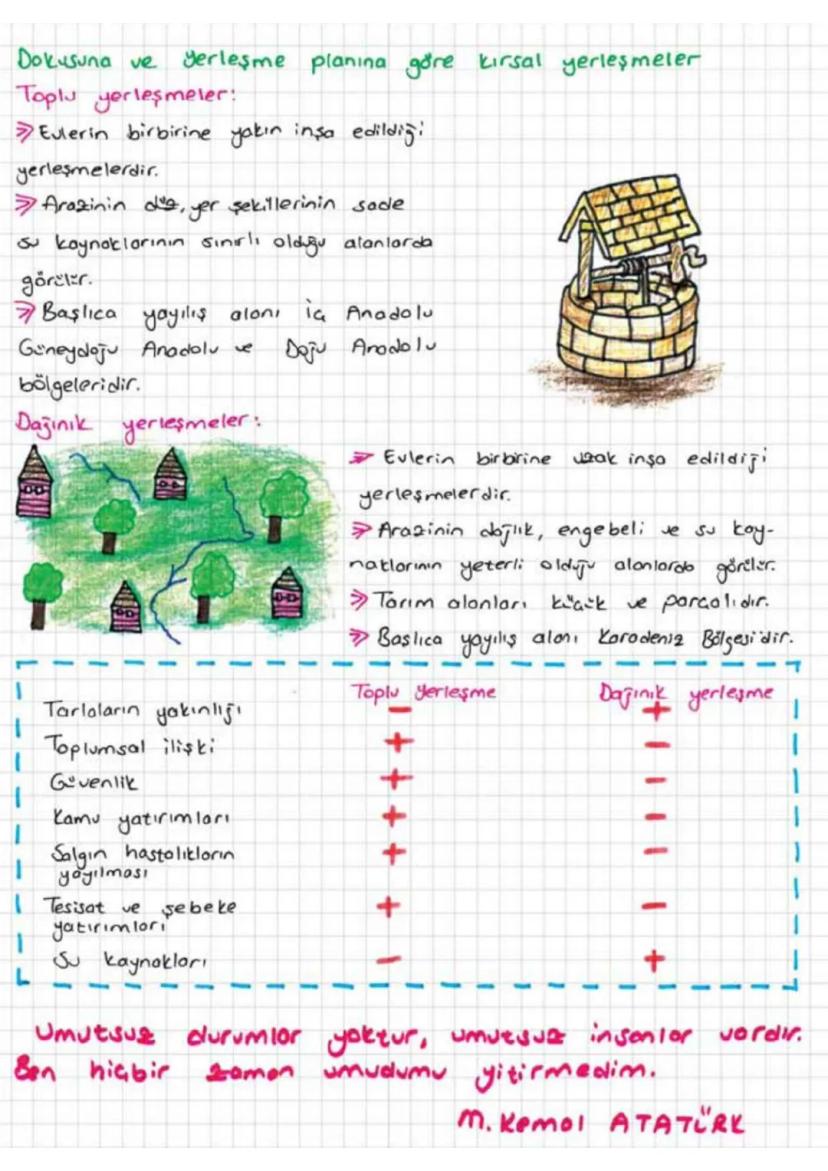 Dokusuna ve Yerleşme planına göre kırsal yerleşmeler
Toplu yerleşmeler:
⇒ Evlerin birbirine yakın inşa edildiği
yerleşmelerdir.
⇒ Arazinin düz, yer şekillerinin sade
su kaynaklarının sınırlı olduğu alanlarda
görülür.
⇒ Başlıca yayılış alanı İç Anadolu
Güneydoğu Anadolu ve Doğu Anadolu
bölgeleridir.
Dağınık yerleşmeler:
⇒ Evlerin birbirine uzak inşa edildiği
yerleşmelerdir.
⇒ Arazinin dağlık, engebeli ve su kay-
naklarının yeterli olduğu alanlarda görülür.
⇒ Tarım alanları küçük ve parçalıdır.
⇒ Başlıca yayılış alanı Karadeniz Bölgesi'dir.
Toplu Yerleşme Dağınık yerleşme
Tarlaların yakınlığı - +
Toplumsal ilişki + -
Güvenlik + -
Kamu yatırımları + -
Salgın hastalıkların + -
yayılması
Tesisat ve şebeke + -
yatırımları
Su kaynakları - +
Umutsuz durumlar yoktur, umutsuz insanlar vardır.
Ben hiçbir zaman umudumu yitirmedim.
M. Kemal ATATÜRK